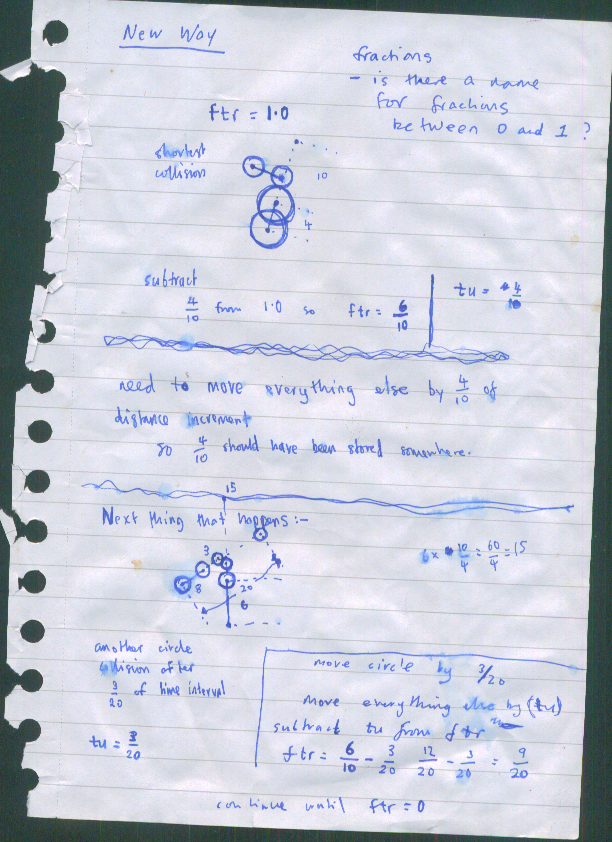 New Way
fractions
- is there a name
for fractions
between 0 and 1 ?
ftr = 1.0
shortest
collision
10
4
subtract
4/10 from 1.0 so ftr = 6/10
tu = 4/10
need to move everything else by 4/10 of
distance increment
so 4/10 should have been stored somewhere.
15
Next thing that happens :-
3
8
20
6
6 x 10/4 = 60/4 = 15
another circle
collision after
3/20 of time interval
tu = 3/20
move circle by 3/20
move everything else by (tu)
subtract tu from ftr
ftr = 6/10 - 3/20 12/20 - 3/20 = 9/20
continue until ftr = 0